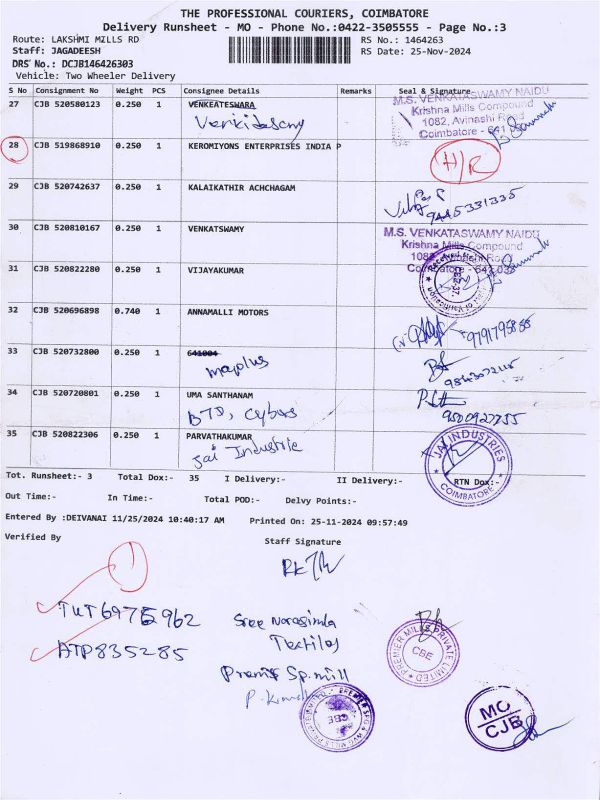 THE PROFESSIONAL COURIERS, COIMBATORE
Delivery Runsheet - MO - Phone No.:0422-3505555 - Page No.:3
Route: LAKSHMI MILLS RD
RS No.: 1464263
Staff: JAGADEESH
RS Date: 25-Nov-2024
DRS No.: DCJB146426303
Vehicle: Two Wheeler Delivery
S No Consignment No Weight PCS Consignee Details Remarks Seal & Signature
27 CJB 520580123 0.250 1 VENKEATESWARA
M.S. VENKATASWAMY NAIDU
Krishna Mills Compound
1082, Avinashi Road
Coimbatore - 641
28 CJB 519868910 0.250 1 KEROMIYONS ENTERPRISES INDIA P
H/R
29 CJB 520742637 0.250 1 KALAIKATHIR ACHCHAGAM
9445331335
30 CJB 520810167 0.250 1 VENKATSWAMY
M.S. VENKATASWAMY NAIDU
Krishna Mills Compound
1082, Avinashi Road
Coimbatore - 641 037
31 CJB 520822280 0.250 1 VIJAYAKUMAR
32 CJB 520696898 0.740 1 ANNAMALLI MOTORS
33 CJB 520732800 0.250 1 641004
mayplus
34 CJB 520720801 0.250 1 UMA SANTHANAM
BTD, Cybers
35 CJB 520822306 0.250 1 PARVATHAKUMAR
Jai Industrie
JAI INDUSTRIES
COIMBATORE
Tot. Runsheet:- 3 Total Dox:- 35 I Delivery:- II Delivery:- RTN Dox:-
Out Time:- In Time:- Total POD:- Delvy Points:-
Entered By :DEIVANAI 11/25/2024 10:40:17 AM Printed On: 25-11-2024 09:57:49
Verified By
Staff Signature
1
Sree Narasimha
Textiles
ATP835285
Premier Sp.mill
PREMIER MILLS PRIVATE LIMITED
CBE
CBE
MO
CJB